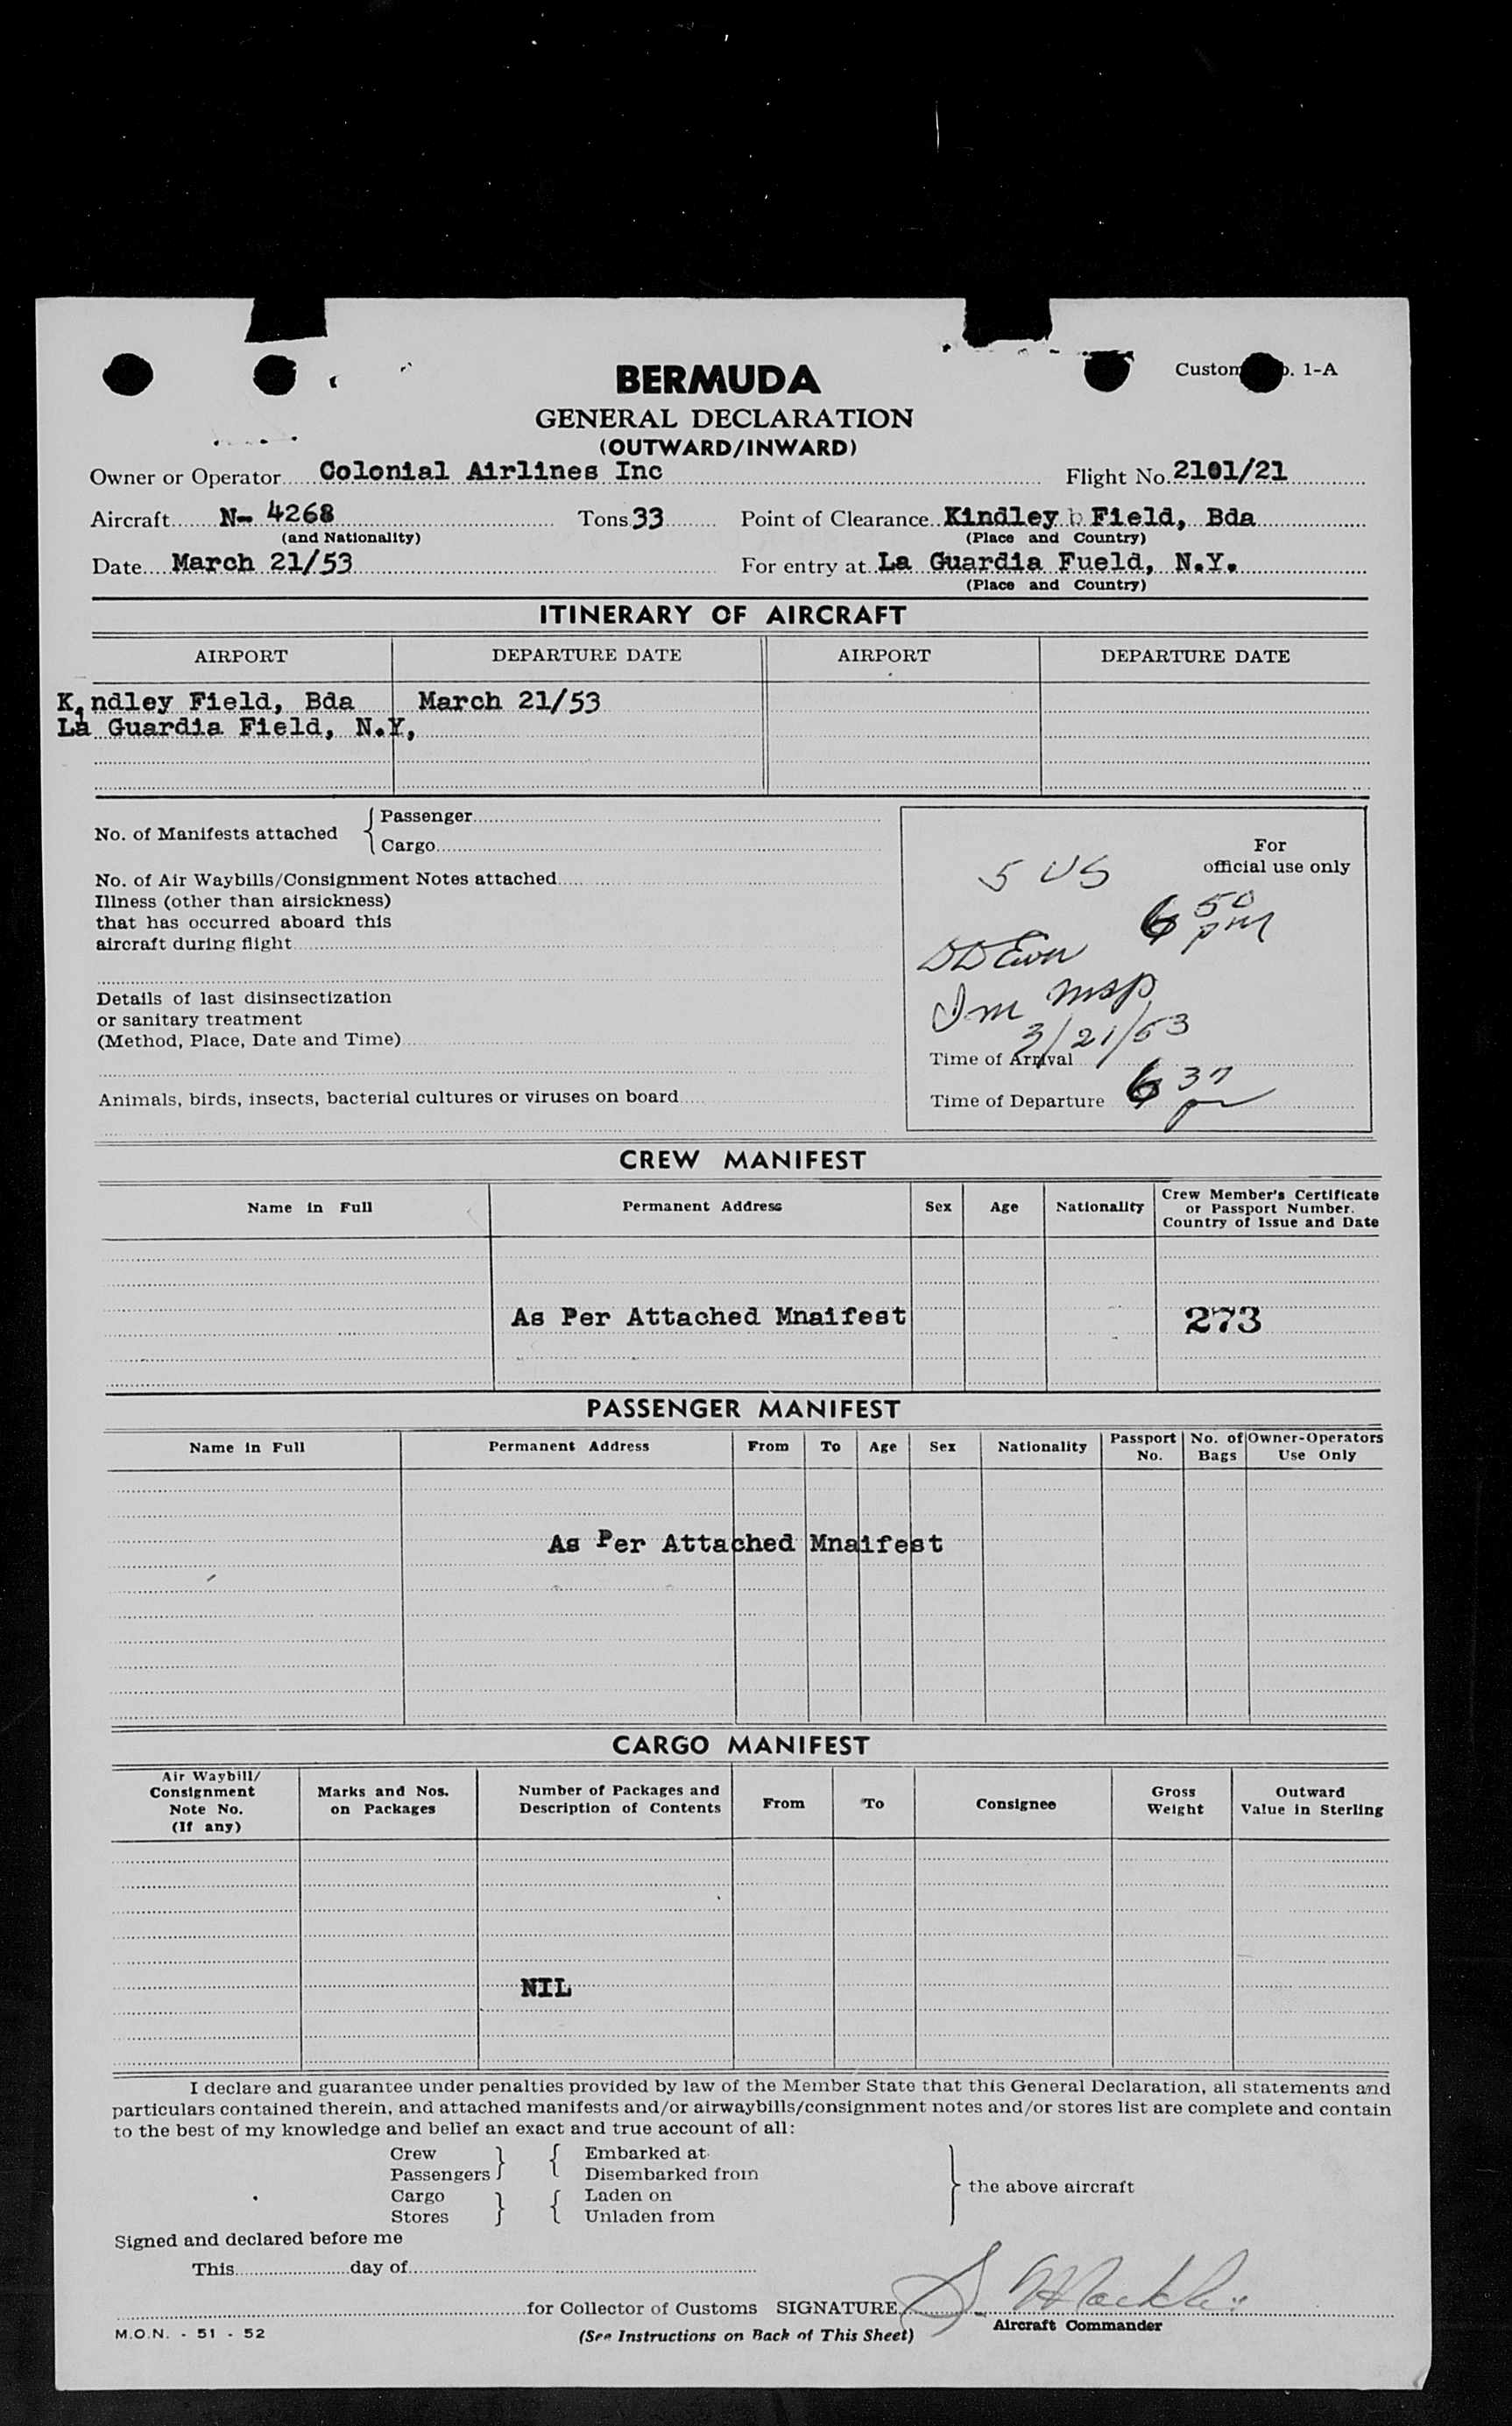 Custom . 1-A
BERMUDA
GENERAL DECLARATION
(OUTWARD/INWARD)
Owner or Operator Colonial Airlines Inc Flight No. 2101/21
Aircraft N- 4268 Tons 33 Point of Clearance Kindley b Field, Bda
(and Nationality) (Place and Country)
Date March 21/53 For entry at La Guardia Fueld, N.Y.
(Place and Country)
ITINERARY OF AIRCRAFT
AIRPORT DEPARTURE DATE AIRPORT DEPARTURE DATE
Kindley Field, Bda March 21/53
La Guardia Field, N.Y,
No. of Manifests attached { Passenger
Cargo
No. of Air Waybills/Consignment Notes attached
Illness (other than airsickness)
that has occurred aboard this
aircraft during flight
Details of last disinsectization
or sanitary treatment
(Method, Place, Date and Time)
Animals, birds, insects, bacterial cultures or viruses on board
For
official use only
5 US
6 50 pm
Im msp
3/21/53
Time of Arrival
Time of Departure 6 37 pm
CREW MANIFEST
Name in Full Permanent Address Sex Age Nationality Crew Member's Certificate or Passport Number. Country of Issue and Date
As Per Attached Mnaifest 273
PASSENGER MANIFEST
Name in Full Permanent Address From To Age Sex Nationality Passport No. No. of Bags Owner-Operators Use Only
As Per Attached Mnaifest
CARGO MANIFEST
Air Waybill/ Consignment Note No. (If any) Marks and Nos. on Packages Number of Packages and Description of Contents From To Consignee Gross Weight Outward Value in Sterling
NIL
I declare and guarantee under penalties provided by law of the Member State that this General Declaration, all statements and
particulars contained therein, and attached manifests and/or airwaybills/consignment notes and/or stores list are complete and contain
to the best of my knowledge and belief an exact and true account of all:
Crew } { Embarked at
Passengers Disembarked from
Cargo } { Laden on } the above aircraft
Stores Unladen from
Signed and declared before me
This day of
for Collector of Customs SIGNATURE
M.O.N. - 51 - 52 (See Instructions on Back of This Sheet) Aircraft Commander